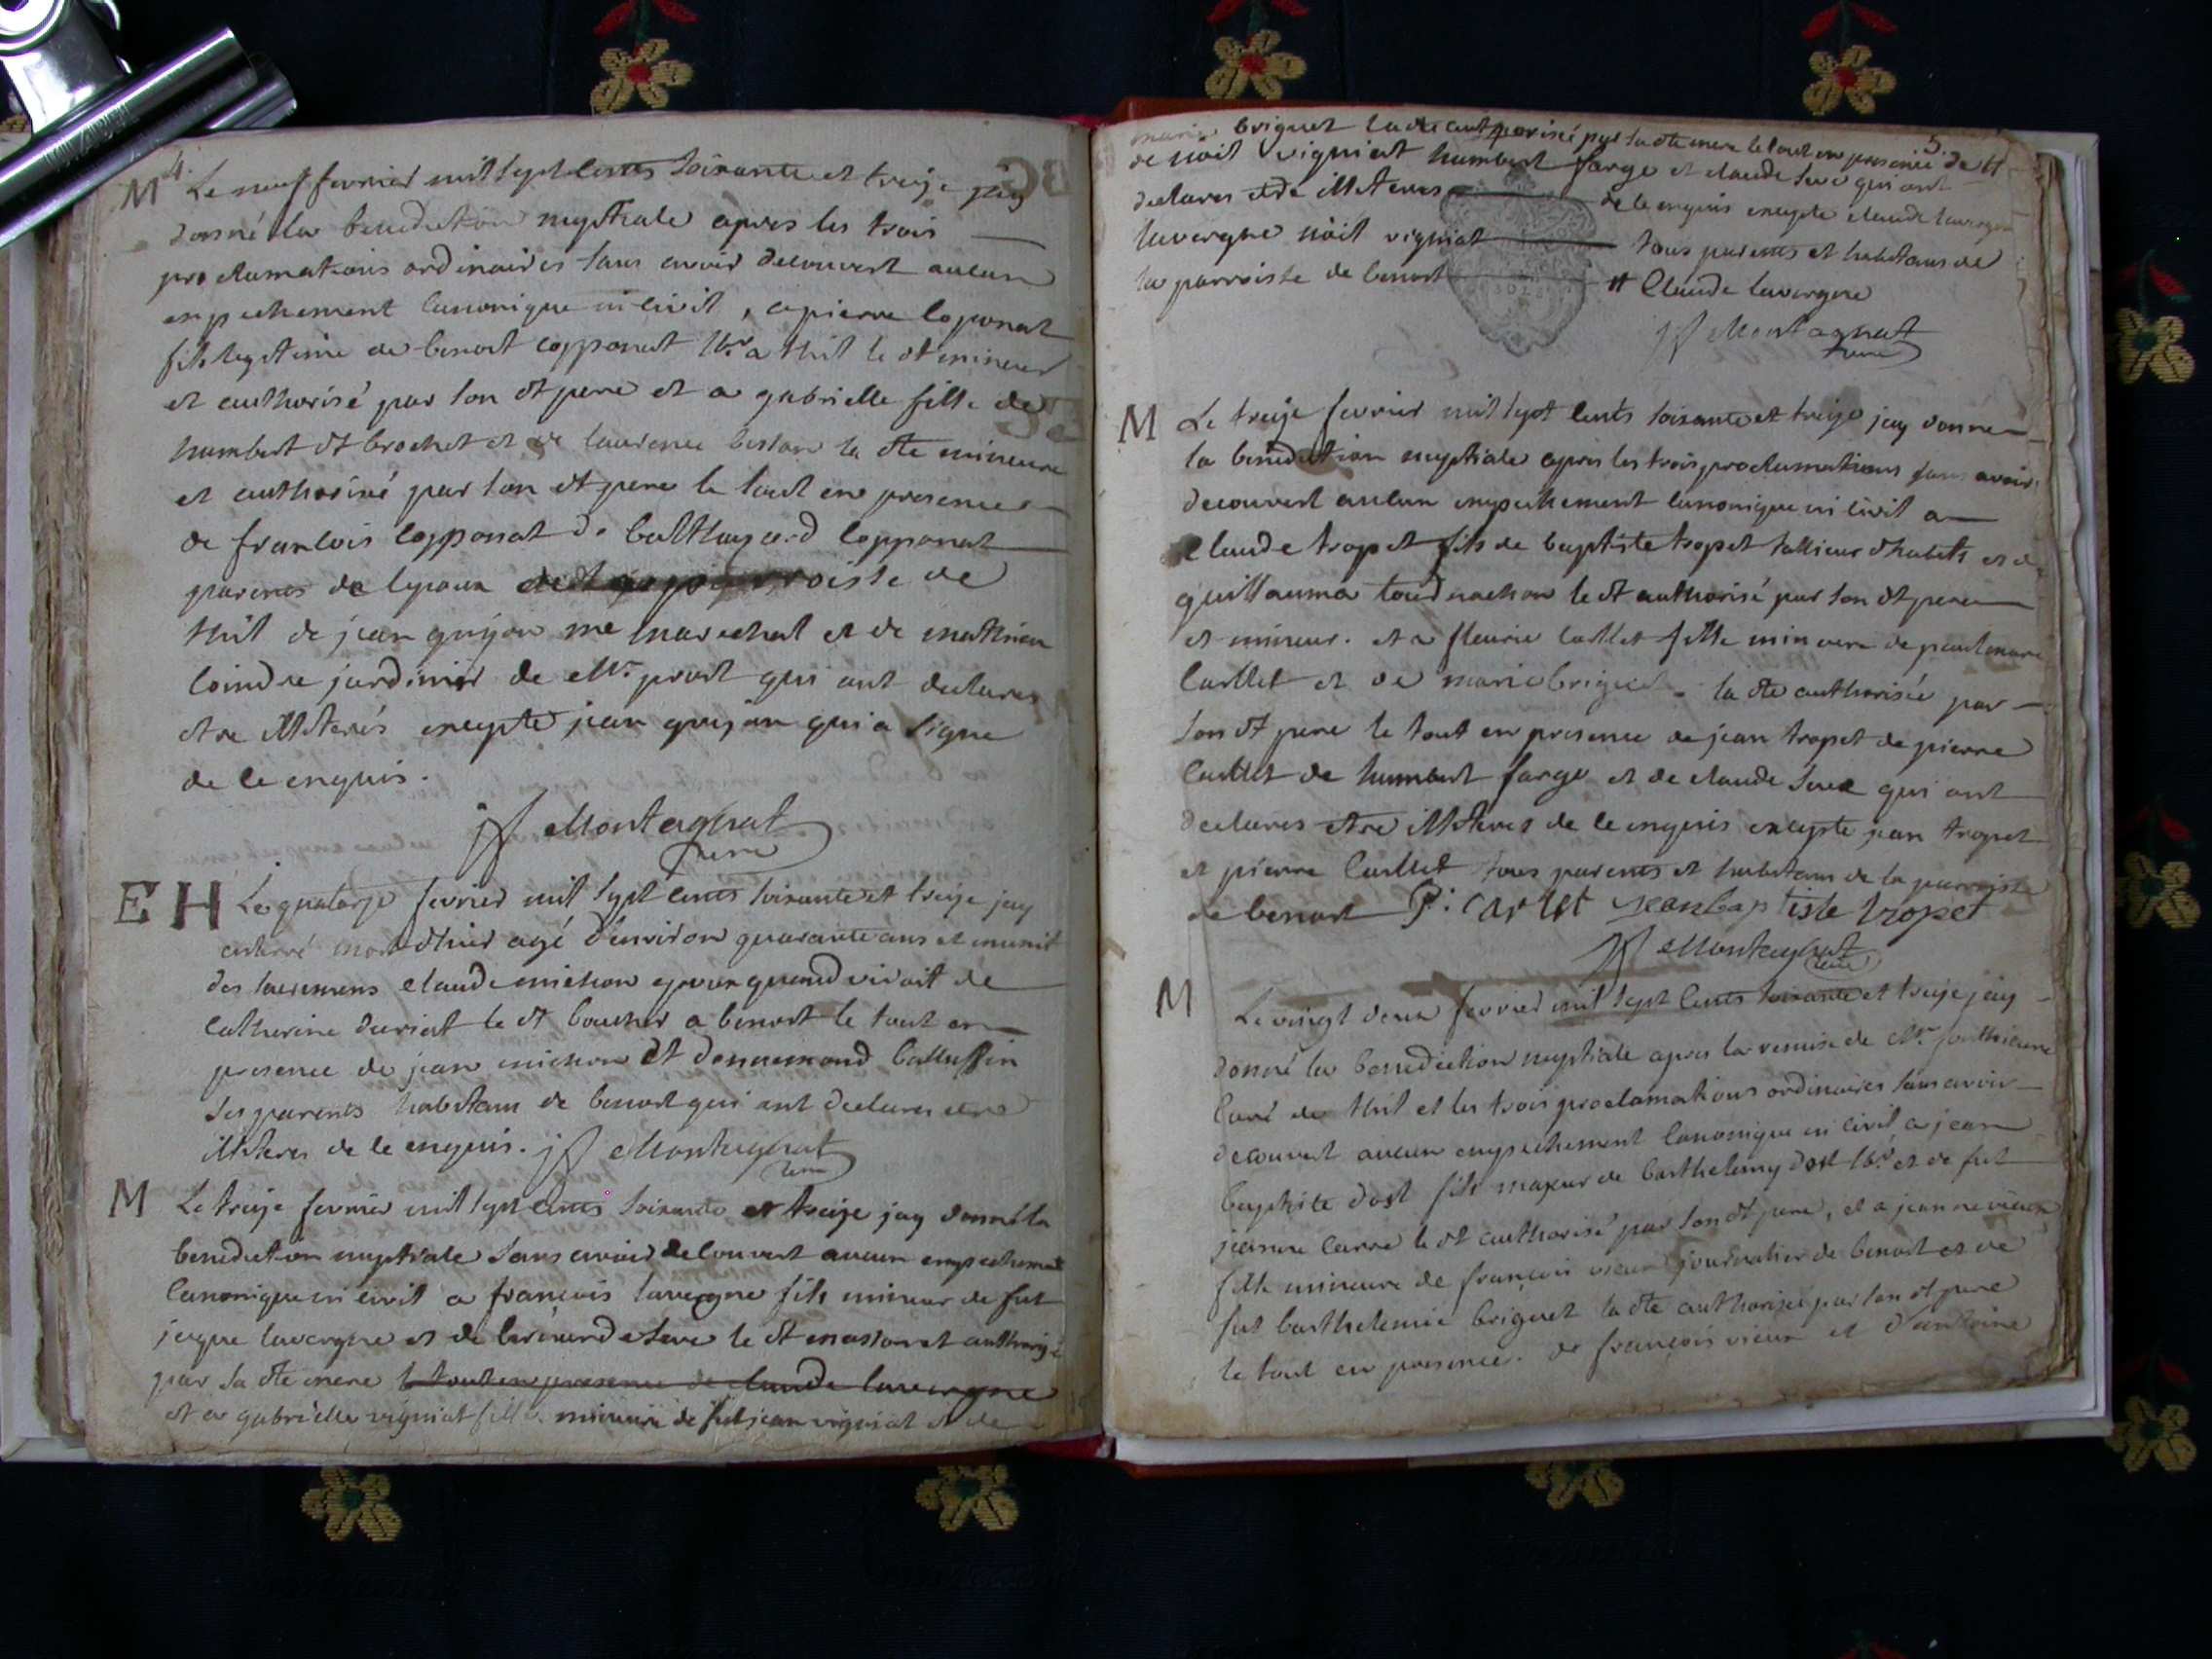 4.
M Le neuf fevrier mil sept cents soixante et treize jay
donné la benediction nuptiale apres les trois
proclamations ordinaires sans avoir decouvert aucun
empechement canonique ni civil, a pierre copponat
fils legitime de benoit copponat a thil le dt mineur
et authorisé par son dt pere et a gabrielle fille de
humbert dt brochet et de laurence beston la dte mineure
et authorisé par son dt pere le tout en presence
de francois copponat de balthazard copponat
parents de lepoux paroisse de
thil de jean guyon me marechal et de mathieu
coindre jardinier de Mr. prost qui ont declares
etre illiterés excepte jean guyon qui a signe
de ce enquis.
jf Montagnat
cure
EH Le quatorze fevrier mil sept cents soixante et treize jay
enterré mort dhier agé denviron quarante ans et munit
des sacremens claude michon epoux quand vivoit de
catherine duriat le dt boucher a benost le tout en
presence de jean michon et donnemond balluffin
ses parents habitans de benost qui ont declares etre
illiteres de ce enquis. jf Montagnat
cure
M Le treize fevrier mil sept cents soixante et treize jay donné la
benediction nuptiale sans avoir decouvert aucun empechement
canonique ni civil a francois lavergne fils mineur de fut
jaque lavergne et de serve le dt masson et authorizé
par sa dte mere le tout en presence de claude lavergne
et a gabrielle vigniat fille mineure de fut jean vigniat et de
5.
marie briguet la dte authorisé par sa dte mere le tout en presence de #
de noit vigniat humbert farge et claude serve qui ont
declares etre illiteres de ce enquis excepte claude lavergne
lavergne noit vigniat tous parents et habitans de
la parroisse de benost # Claude lavergne
jf Montagnat
cure
M Le treize fevrier mil sept cents soixante et treize jay donné
la benediction nuptiale apres les trois proclamations sans avoir
decouvert aucun empechement canonique ni civil a
claude tropet fils de baptiste tropet tallieur dhabits et de
guillauma tournachon le dt authorisé par son dt pere
et mineur. et a fleurie carllet fille mineure de
carllet et de marie briguet la dte authorisée par
son dt pere le tout en presence de jean tropet de pierre
carllet de humbert farge et de claude serve qui ont
declares etre illiteres de ce enquis excepte jean tropet
et pierre carllet tous parents et habitans de la parroisse
de benost P: carlet jean baptiste tropet
jf Montagnat
cure
M Le vingt deux fevrier mil sept cents soixante et treize jay
donné la benediction nuptiale apres la remise de Mr.
curé de thil et les trois proclamations ordinaires sans avoir
decouvert aucun empechement canonique ni civil a jean
baptiste dost fils majeur de barthelemy dost et de fut
jeanne carre le dt authorisé par son dt pere, et a jeanne vieux
fille mineure de françois vieux journalier de benost et de
fut barthelemie briguet la dte authorisée par son dt pere
le tout en presence. de françois vieux et d'antoine